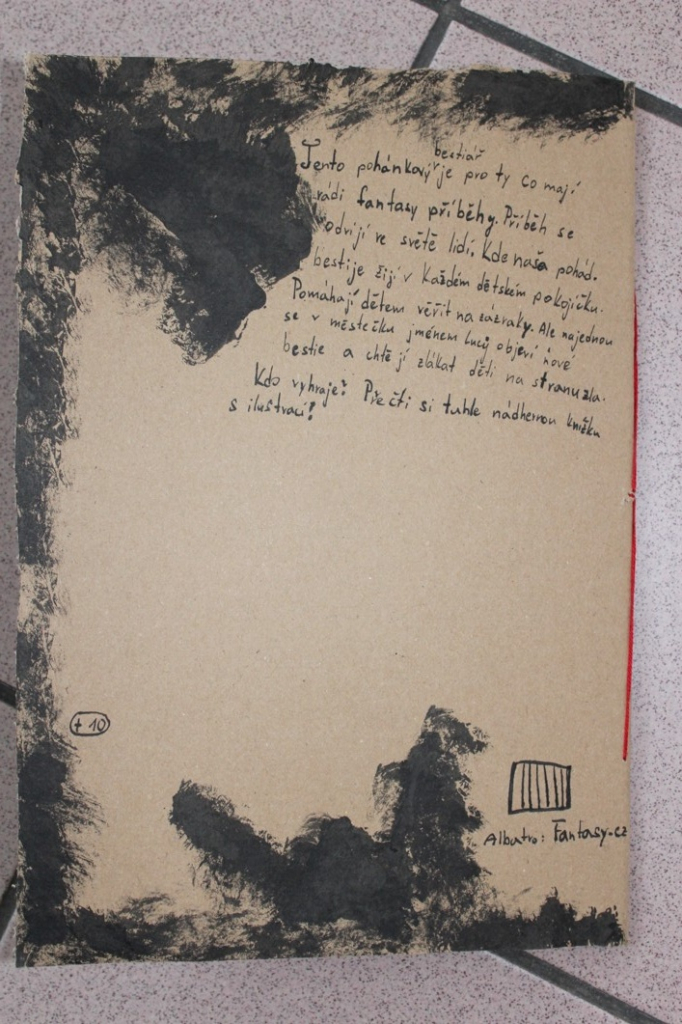 bestiář
Tento pohánkový je pro ty co mají
rádi fantasy příběhy. Příběh se
odvijí ve světě lidí. Kde naša pohád.
bestije žijí v každém dětském pokojíčku.
Pomáhají dětem věřit na zázraky. Ale najednou
se v městečku jménem Lucy objeví nové
bestie a chtějí zlákat děti na stranu zla.
Kdo vyhraje? Přečti si tuhle nádhernou knížku
s ilustrací!
+ 10
Albatro: Fantasy.cz